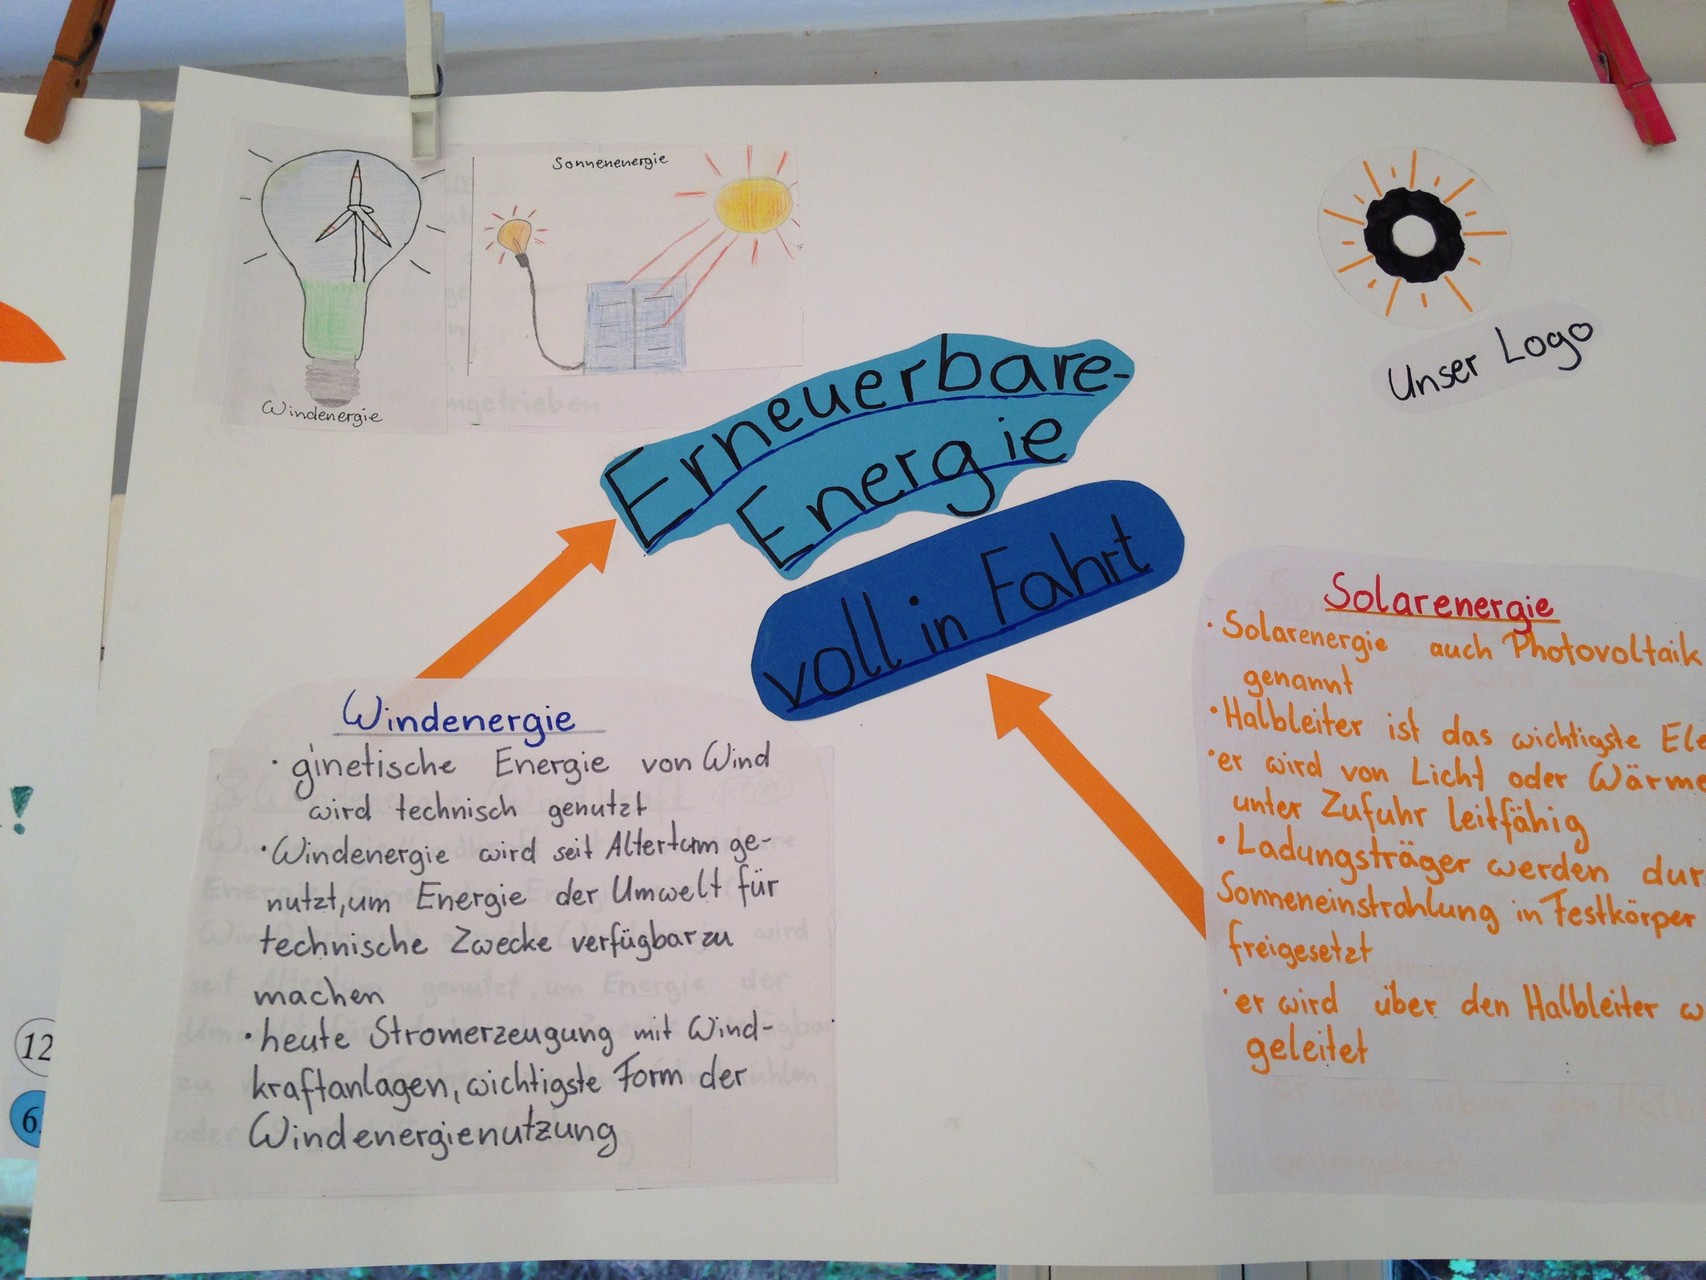 Sonnenenergie
Windenergie
Unser Logo
Erneuerbare-
Energie
voll in Fahrt
Windenergie
• ginetische Energie von Wind
wird technisch genutzt
• Windenergie wird seit Altertum ge-
nutzt, um Energie der Umwelt für
technische Zwecke verfügbar zu
machen
• heute Stromerzeugung mit Wind-
kraftanlagen, wichtigste Form der
Windenergienutzung
Solarenergie
• Solarenergie auch Photovoltaik
genannt
• Halbleiter ist das wichtigste Ele
• er wird von Licht oder Wärme
unter Zufuhr leitfähig
• Ladungsträger werden dur
Sonneneinstrahlung in Festkörper
freigesetzt
• er wird über den Halbleiter w
geleitet
!
12
6.